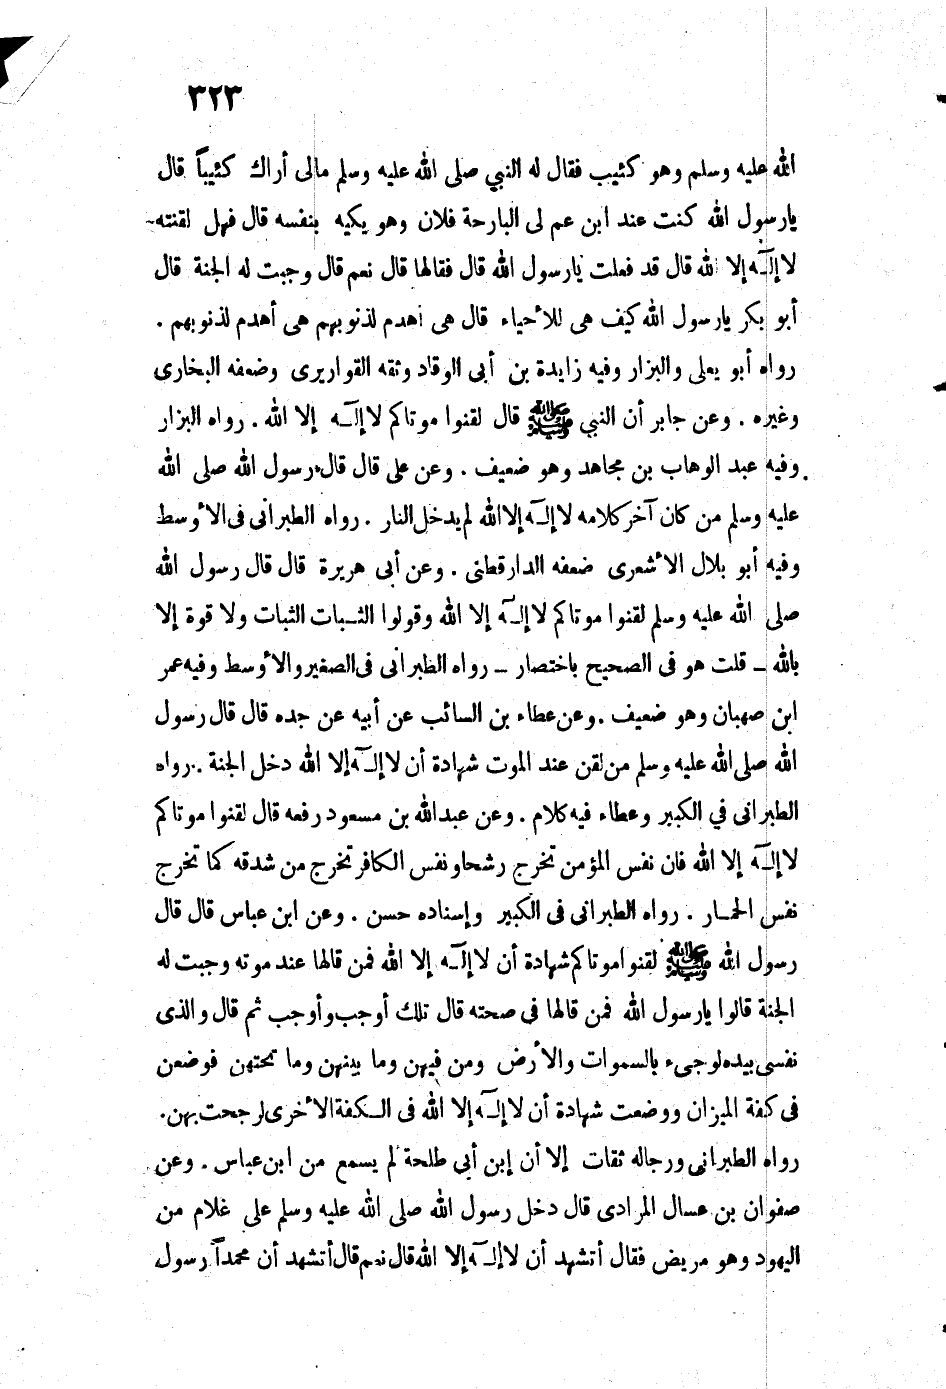 ٣٢٣
الله عليه وسلم وهو كئيب فقال له النبي صلى الله عليه وسلم مالى أراك كئيباً قال
يارسول الله كنت عند ابن عم لى البارحة فلان وهو يكيه بنفسه قال فهل لقنته
لا إلـۤه إلا الله قال قد فعلت يارسول الله قال فقالها قال نعم قال وجبت له الجنة قال
أبو بكر يارسول الله كيف هى للأحياء قال هى أهدم لذنوبهم هى أهدم لذنوبهم .
رواه أبو يعلى والبزار وفيه زايدة بن أبى الوقاد وثقه القواريرى وضعفه البخارى
وغيره . وعن جابر أن النبي ﷺ قال لقنوا موتاكم لا إلـۤه إلا الله . رواه البزار
وفيه عبد الوهاب بن مجاهد وهو ضعيف . وعن على قال قال رسول الله صلى الله
عليه وسلم من كان آخر كلامه لا إلـۤه إلا الله لم يدخل النار . رواه الطبرانى فى الأوسط
وفيه أبو بلال الأشعرى ضعفه الدارقطنى . وعن أبى هريرة قال قال رسول الله
صلى الله عليه وسلم لقنوا موتاكم لا إلـۤه إلا الله وقولوا الثـبات الثبات ولا قوة إلا
بالله ــ قلت هو فى الصحيح باختصار ــ رواه الطبرانى فى الصغير والأوسط وفيه عمر
ابن صهبان وهو ضعيف . وعن عطاء بن السائب عن أبيه عن جده قال قال رسول
الله صلى الله عليه وسلم من لقن عند الموت شهادة أن لا إلـۤه إلا الله دخل الجنة . رواه
الطبرانى في الكبير وعطاء فيه كلام . وعن عبدالله بن مسعود رفعه قال لقنوا موتاكم
لا إلـۤه إلا الله فان نفس المؤمن تخرج رشحا ونفس الكافر تخرج من شدقه كما تخرج
نفس الحمـار . رواه الطبرانى فى الكبير وإسناده حسن . وعن ابن عباس قال قال
رسول الله ﷺ لقنوا موتاكم شهادة أن لا إلـۤه إلا الله فمن قالها عند موته وجبت له
الجنة قالوا يارسول الله فمن قالها فى صحته قال تلك أوجب وأوجب ثم قال والذى
نفسى بيده لو جىء بالسموات والأرض ومن فيهن وما بينهن وما تحتهن فوضعن
فى كفة الميزان ووضعت شهادة أن لا إلـۤه إلا الله فى الـكفة الأخرى لرجحت بهن.
رواه الطبرانى ورجاله ثقات إلا أن إبن أبي طلحة لم يسمع من ابن عباس . وعن
صفوان بن عسال المرادى قال دخل رسول الله صلى الله عليه وسلم على غلام من
اليهود وهو مريض فقال أتشهد أن لا إلـۤه إلا الله قال نعم قال أتشهد أن محمداً رسول